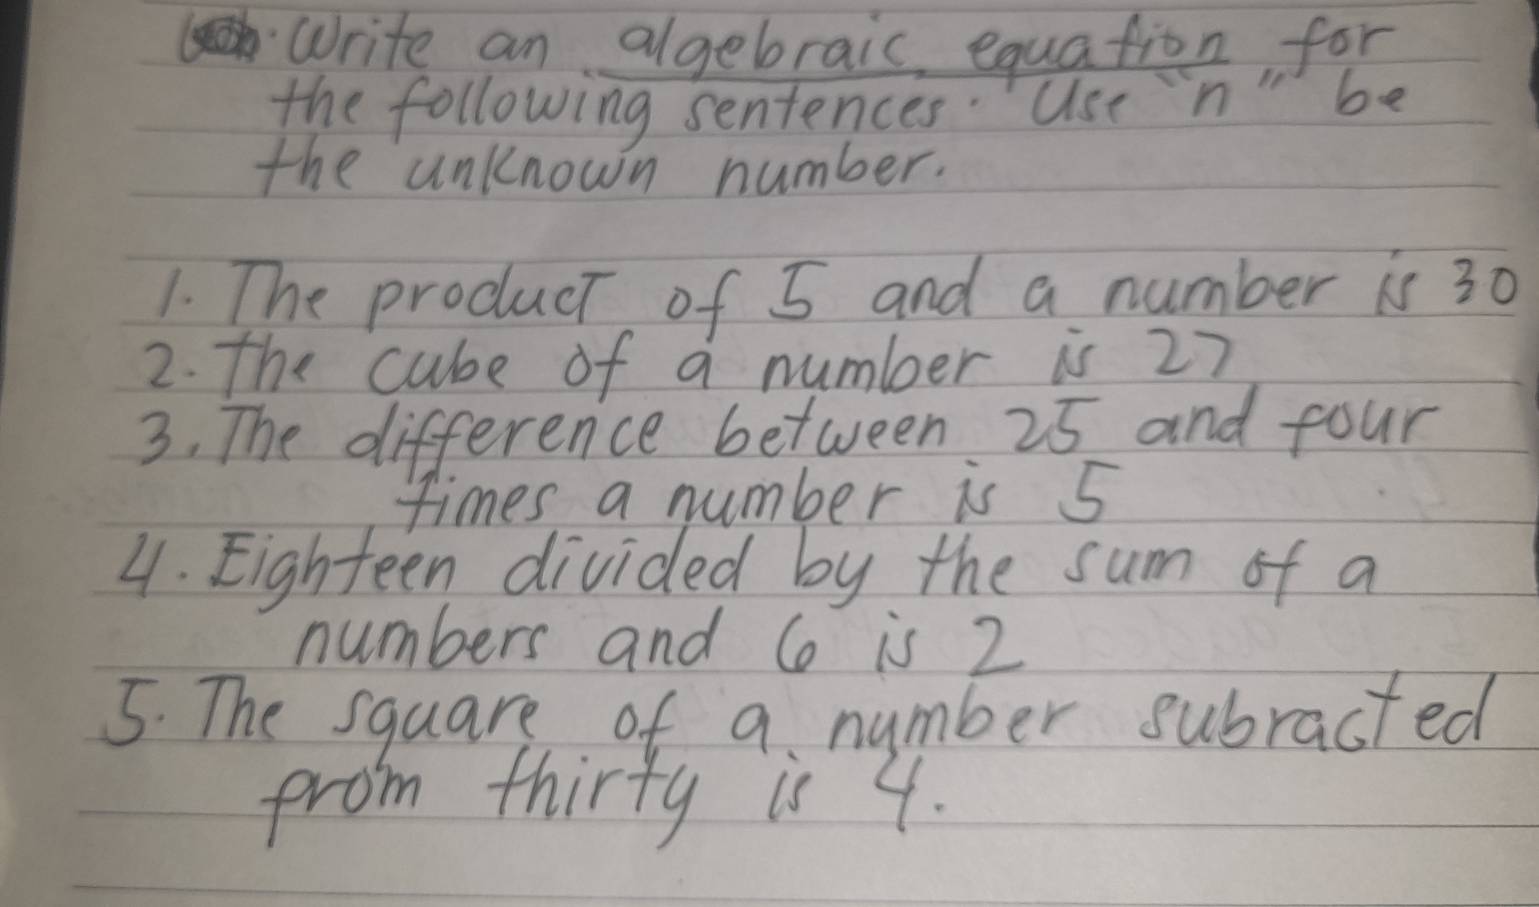 Write an algebraic equation for
the following sentences. Use "n" be
the unknown number.
1. The product of 5 and a number is 30
2. The cube of a number is 27
3. The difference between 25 and four
times a number is 5
4. Eighteen divided by the sum of a
numbers and 6 is 2
5. The square of a number subracted
from thirty is 4.